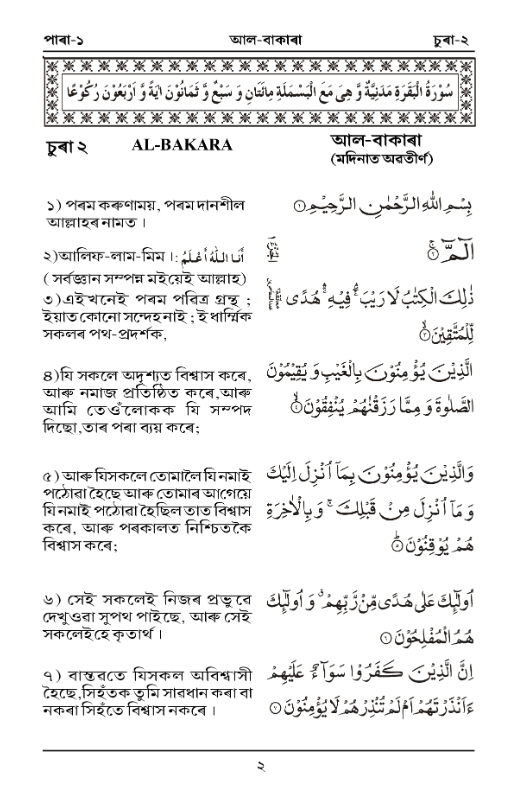 পাৰা-১ আল-বাকাৰা চুৰা-২
سُوْرَةُ الْبَقَرَةِ مَدَنِيَّةٌ وَّ هِىَ مَعَ الْبَسْمَلَةِ مِائَتَانِ وَ سَبْعٌ وَّ ثَمَانُوْنَ اٰيَةً وَّ اَرْبَعُوْنَ رُكُوْعًا
চুৰা ২ AL-BAKARA আল-বাকাৰা
(মদিনাত অৱতীৰ্ণ)
১) পৰম কৰুণাময়, পৰম দানশীল
আল্লাহৰ নামত ।
بِسْمِ اللّٰهِ الرَّحْمٰنِ الرَّحِيْمِ ۝١
২)আলিফ-লাম-মিম ।: اَنَا اللّٰهُ اَعْلَمُ
( সৰ্বজ্ঞান সম্পন্ন ময়েই আল্লাহ)
الٓمّٓ ۝٢
৩)এইখনেই পৰম পবিত্ৰ গ্ৰন্থ ;
ইয়াত কোনো সন্দেহ নাই ; ই ধাৰ্ম্মিক
সকলৰ পথ-প্ৰদৰ্শক,
ذٰلِكَ الْكِتٰبُ لَا رَيْبَ ۛ فِيْهِ ۛ هُدًى
لِّلْمُتَّقِيْنَ ۝٣
৪)যি সকলে অদৃশ্যত বিশ্বাস কৰে,
আৰু নমাজ প্ৰতিষ্ঠিত কৰে,আৰু
আমি তেওঁলোকক যি সম্পদ
দিছো,তাৰ পৰা ব্যয় কৰে;
الَّذِيْنَ يُؤْمِنُوْنَ بِالْغَيْبِ وَ يُقِيْمُوْنَ
الصَّلٰوةَ وَ مِمَّا رَزَقْنٰهُمْ يُنْفِقُوْنَ ۝٤
৫) আৰু যিসকলে তোমালৈ যি নমাই
পঠোৱা হৈছে আৰু তোমাৰ আগেয়ে
যি নমাই পঠোৱা হৈছিল তাত বিশ্বাস
কৰে, আৰু পৰকালত নিশ্চিতকৈ
বিশ্বাস কৰে;
وَالَّذِيْنَ يُؤْمِنُوْنَ بِمَاۤ اُنْزِلَ اِلَيْكَ
وَ مَاۤ اُنْزِلَ مِنْ قَبْلِكَ ۚ وَ بِالْاٰخِرَةِ
هُمْ يُوْقِنُوْنَ ۝٥
৬) সেই সকলেই নিজৰ প্ৰভুৱে
দেখুওৱা সুপথ পাইছে, আৰু সেই
সকলেই হে কৃতাৰ্থ ।
اُولٰٓئِكَ عَلٰى هُدًى مِّنْ رَّبِّهِمْ ۙ وَ اُولٰٓئِكَ
هُمُ الْمُفْلِحُوْنَ ۝٦
৭) বাস্তৱতে যিসকল অবিশ্বাসী
হৈছে,সিহঁতক তুমি সাৱধান কৰা বা
নকৰা সিহঁতে বিশ্বাস নকৰে ।
اِنَّ الَّذِيْنَ كَفَرُوْا سَوَآءٌ عَلَيْهِمْ
ءَاَنْذَرْتَهُمْ اَمْ لَمْ تُنْذِرْهُمْ لَا يُؤْمِنُوْنَ ۝٧
২